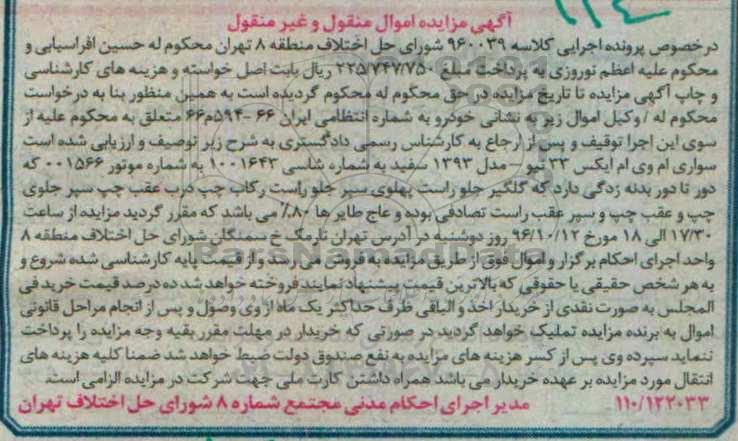 ۱۱۴
آگهی مزایده اموال منقول و غیر منقول
درخصوص پرونده اجرایی کلاسه ۹۶۰۰۳۹ شورای حل اختلاف منطقه ۸ تهران محکوم له حسین افراسیابی و
محکوم علیه اعظم نوروزی به پرداخت مبلغ ۲۲۵/۷۴۷/۷۵۰ ریال بابت اصل خواسته و هزینه های کارشناسی
و چاپ آگهی مزایده تا تاریخ مزایده در حق محکوم له محکوم گردیده است به همین منظور بنا به درخواست
محکوم له / وکیل اموال زیر به نشانی خودرو به شماره انتظامی ایران ۶۶ -۵۹۴م۶۶ متعلق به محکوم علیه از
سوی این اجرا توقیف و پس از ارجاع به کارشناس رسمی دادگستری به شرح زیر توصیف و ارزیابی شده است
سواری ام وی ام ایکس ۳۳ نیو – مدل ۱۳۹۳ سفید به شماره شاسی ۱۰۰۱۶۴۳ به شماره موتور ۰۰۱۵۶۶ که
دور تا دور بدنه زدگی دارد که گلگیر جلو راست پهلوی سپر جلو راست رکاب چپ درب عقب چپ سپر جلوی
چپ و عقب چپ و سپر عقب راست تصادفی بوده و عاج طایر ها ۸۰٪ می باشد که مقرر گردید مزایده از ساعت
۱۷/۳۰ الی ۱۸ مورخ ۹۶/۱۰/۱۲ روز دوشنبه در آدرس تهران نارمک خ سمنگان شورای حل اختلاف منطقه ۸
واحد اجرای احکام برگزار و اموال فوق از طریق مزایده به فروش می رسد و از قیمت پایه کارشناسی شده شروع و
به هر شخص حقیقی یا حقوقی که بالاترین قیمت پیشنهاد نمایند فروخته خواهد شد ده درصد قیمت خرید فی
المجلس به صورت نقدی از خریدار اخذ و الباقی ظرف حداکثر یک ماه از وی وصول و پس از انجام مراحل قانونی
اموال به برنده مزایده تملیک خواهد گردید در صورتی که خریدار در مهلت مقرر بقیه وجه مزایده را پرداخت
ننماید سپرده وی پس از کسر هزینه های مزایده به نفع صندوق دولت ضبط خواهد شد ضمنا کلیه هزینه های
انتقال مورد مزایده بر عهده خریدار می باشد همراه داشتن کارت ملی جهت شرکت در مزایده الزامی است.
۱۱۰/۱۲۲۰۳۳ مدیر اجرای احکام مدنی مجتمع شماره ۸ شورای حل اختلاف تهران